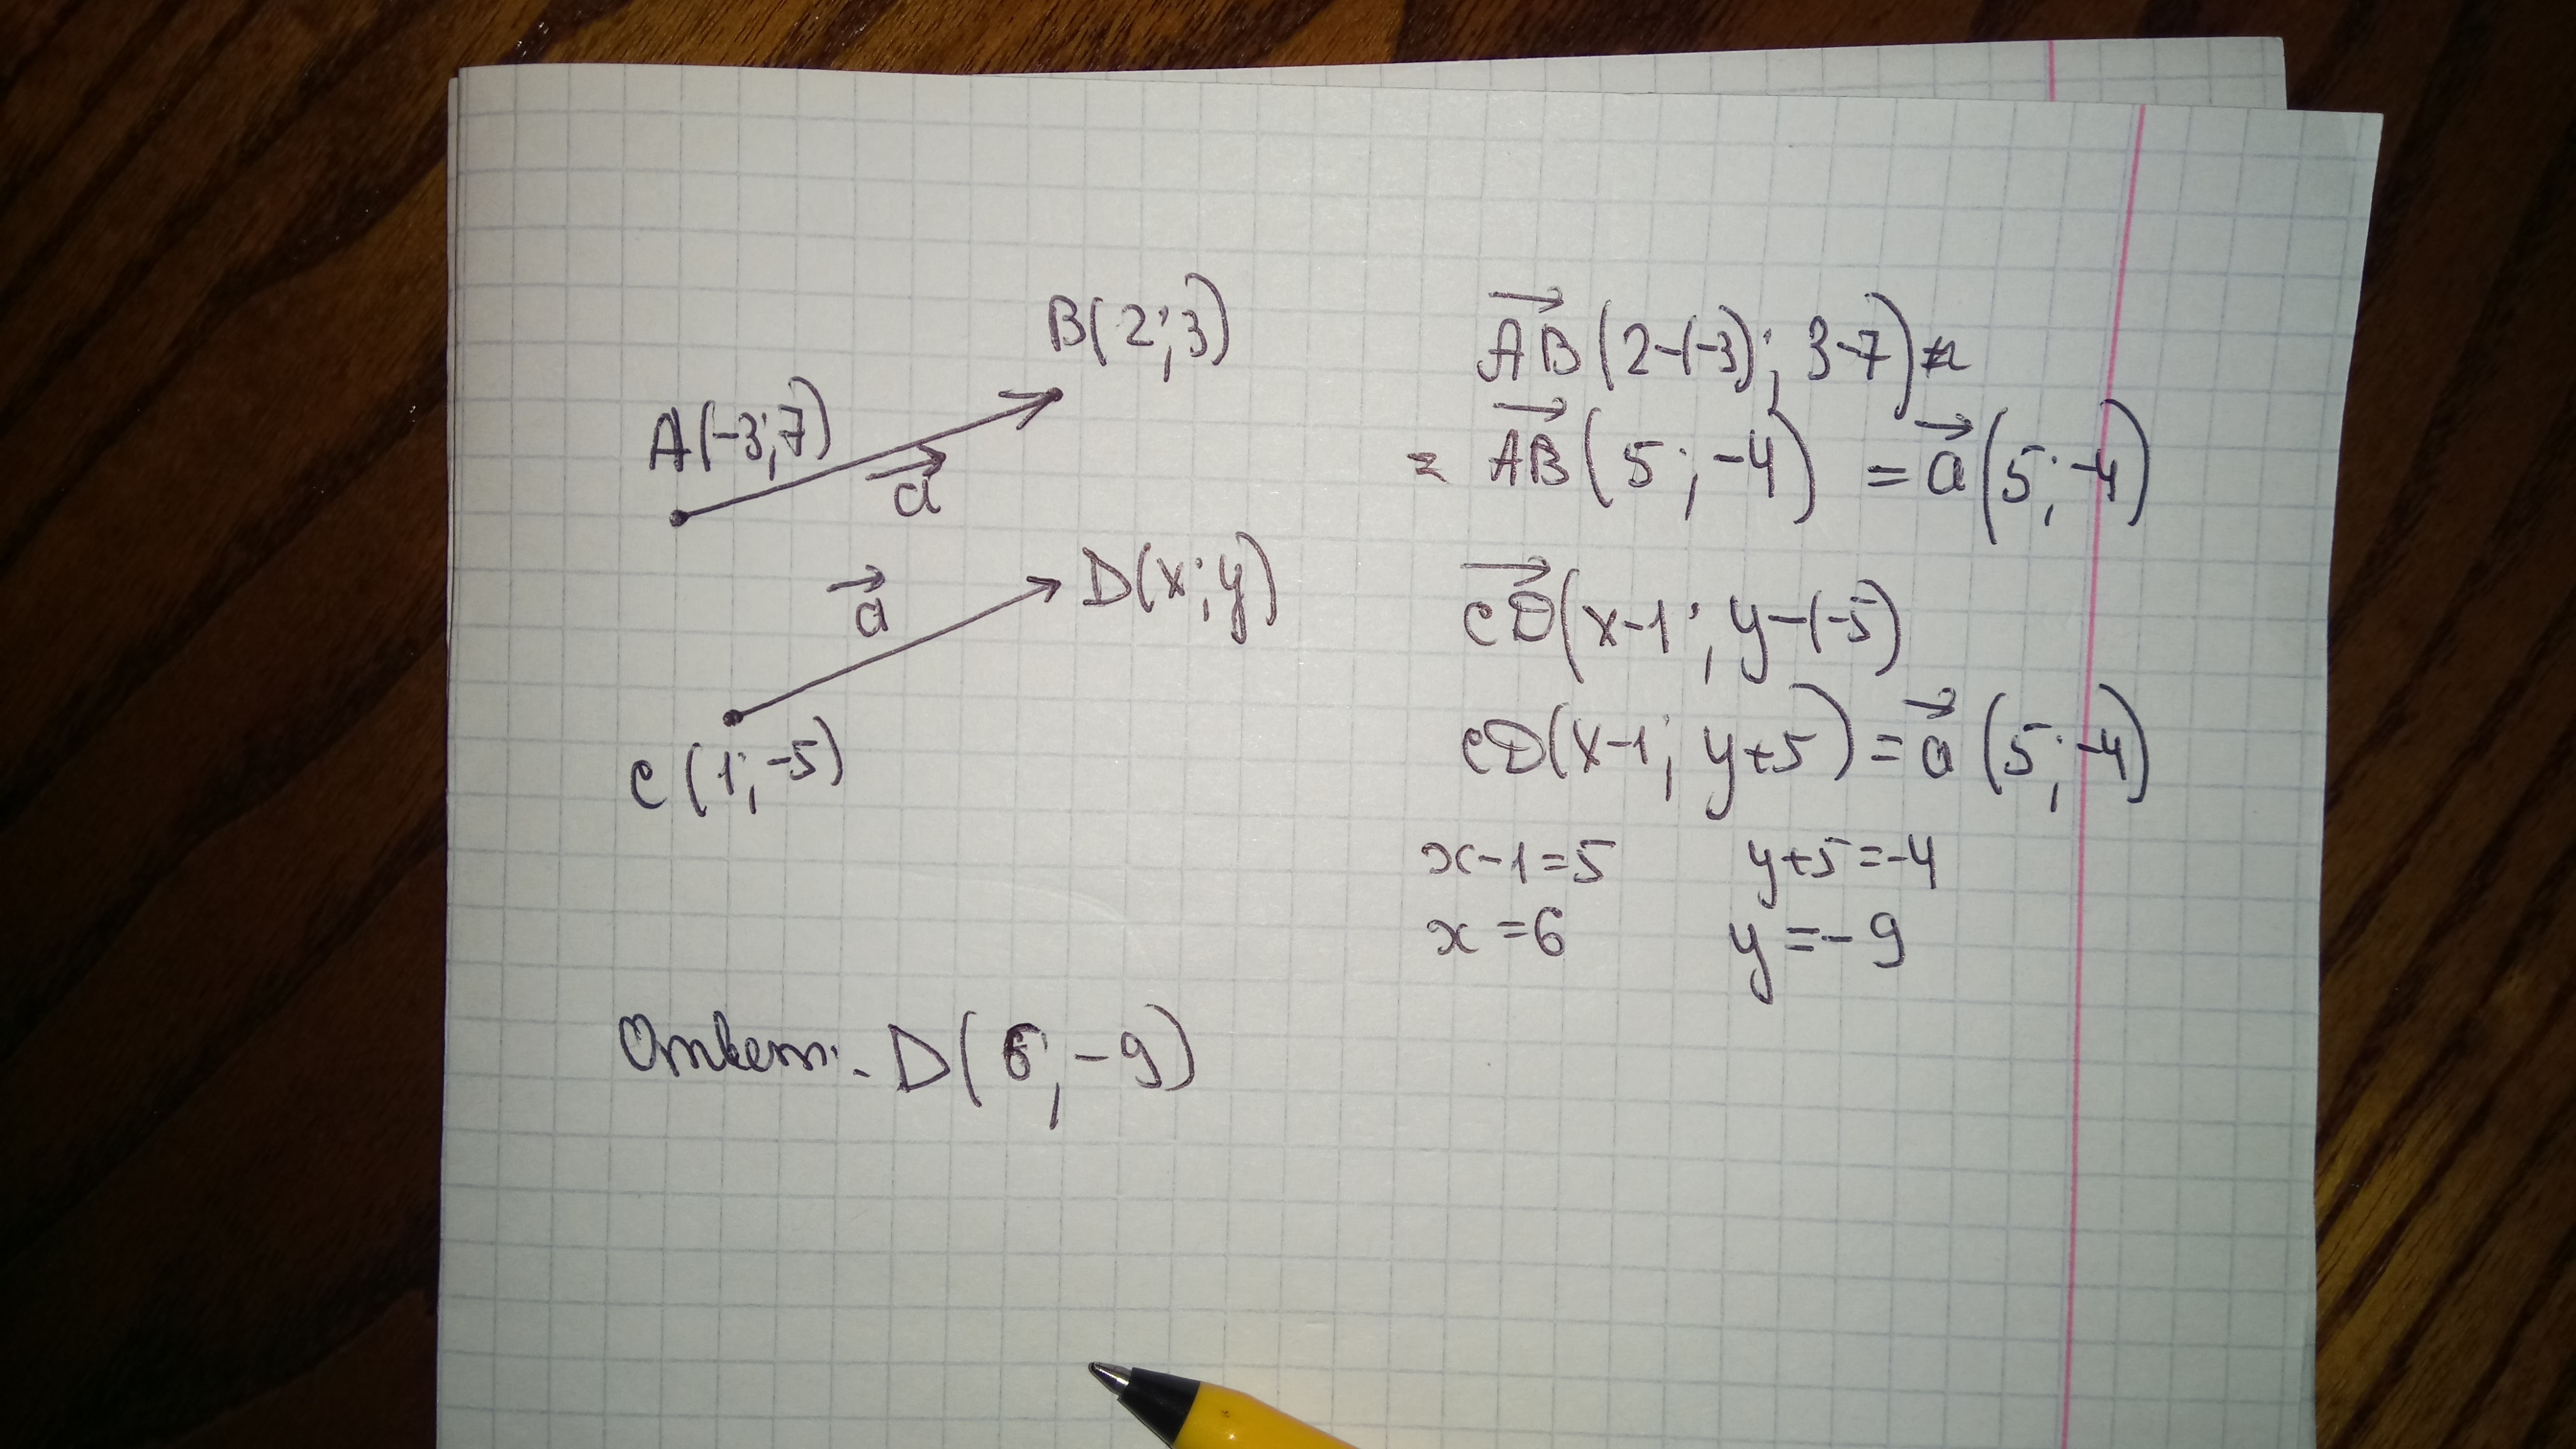 B(2;3)
A(-3;7)
a
D(x;y)
a
C(1;-5)
AB(2-(-3); 3-7) =
= AB(5;-4) = a(5;-4)
CD(x-1; y-(-5)
CD(x-1; y+5) = a(5;-4)
x-1=5 y+5=-4
x=6 y=-9
Ответ: D(6;-9)